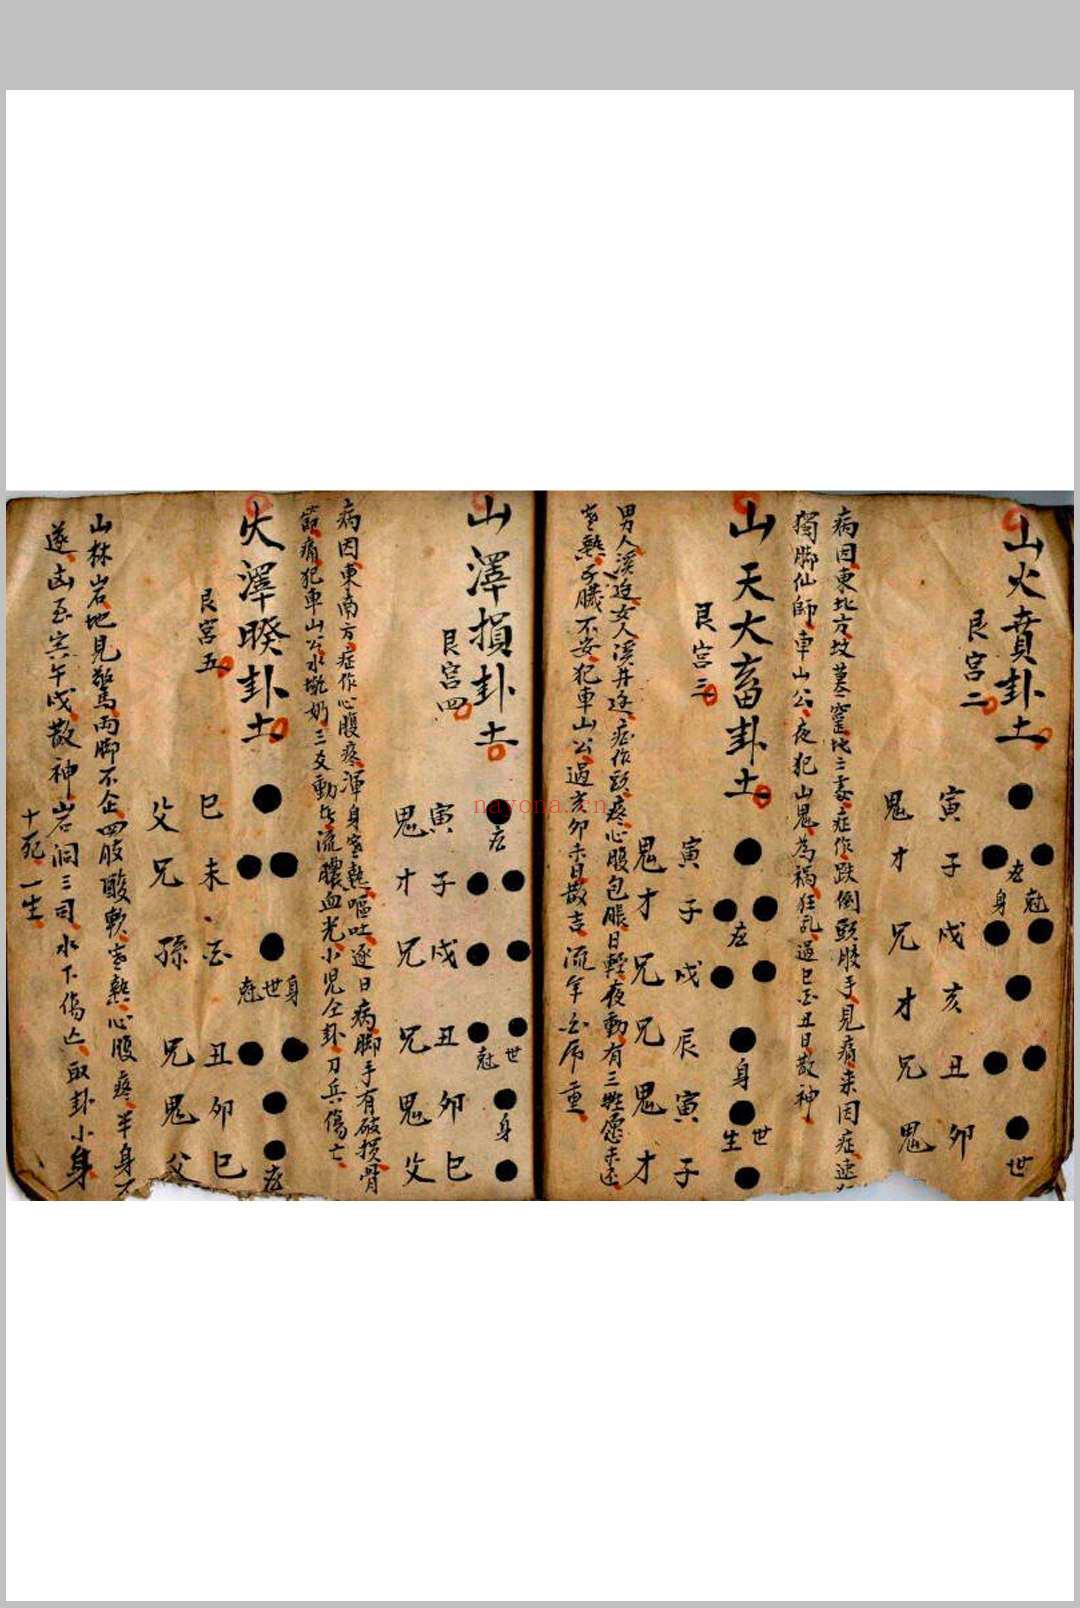 山火賁卦土
艮宮二
寅鬼
子才
戌兄
亥才
丑兄
卯鬼
世
身
病因東北方坟墓
症作跌倒
手見痛
獨脚仙師車山公夜犯山鬼為禍狂乱過巳酉丑日散神
山天大畜卦土
艮宮三
寅鬼
子才
戌兄
辰兄
寅鬼
子才
身
世
男人溪边女人溪井边症作
疼心腹包脹日輕夜動有三
愿未还
不安犯車山公過亥卯未日散吉流年
重
山澤損卦土
艮宮四
寅鬼
子才
戌兄
丑兄
卯鬼
巳父
世
身
病因東南方症作心腹疼渾身寒熱嘔吐逐日病脚手有破損骨
節痛犯車山公水
奶三爻動
流膿血光小児全卦刀兵傷亡
火澤睽卦土
艮宮五
巳父
未兄
酉孫
丑兄
卯鬼
巳父
身世
山林岩地見驚两脚不企四肢酸軟寒熱心腹疼半身不
遂凶至寅午戌散神岩洞三司水下傷亡
卦小身
十死一生
nayona.cn